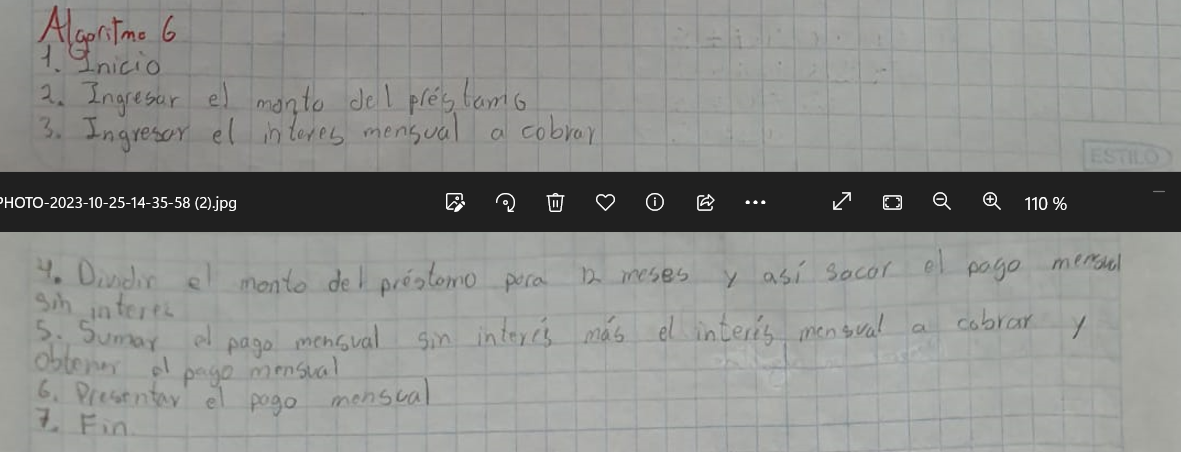 Algoritmo 6
1. Inicio
2. Ingresar el monto del préstamo
3. Ingresar el interes mensual a cobrar
ESTILO
PHOTO-2023-10-25-14-35-58 (2).jpg
110 %
4. Dividir el monto del préstamo para 12 meses y así sacar el pago mensual
sin interés
5. Sumar el pago mensual sin interés más el interés mensual a cobrar y
obtener el pago mensual
6. Presentar el pago mensual
7. Fin